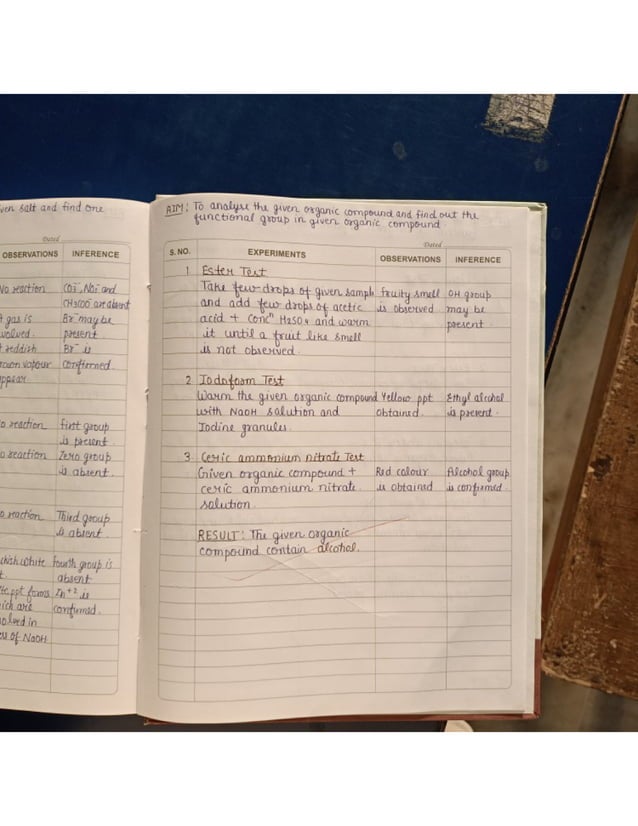 ven salt and find one
Dated
OBSERVATIONS INFERENCE
No reaction CO3⁻, NO2⁻ and
CH3COO⁻ are absent
gas is Br⁻ may be
volved. present.
reddish Br⁻ is
rown vapour confirmed.
appear
o reaction first group
is present.
o reaction Zero group
is absent.
o reaction Third group
is absent.
white fourth group is
absent
ppt forms Zn⁺² is
ich are confirmed.
olved in
of NaOH
AIM : To analyse the given organic compound and find out the
functional group in given organic compound.
Dated
S. NO. EXPERIMENTS OBSERVATIONS INFERENCE
1. Ester Test
Take few drops of given sample fruity smell OH group
and add few drops of acetic is observed may be
acid + Concⁿ H2SO4 and warm present.
it until a fruit like smell
is not observed.
2. Iodoform Test
Warm the given organic compound Yellow ppt Ethyl alcohol
with NaOH solution and obtained. is present.
Iodine granules.
3. Ceric ammonium nitrate Test
Given organic compound + Red colour Alcohol group
ceric ammonium nitrate is obtained is confirmed.
solution.
RESULT : The given organic
compound contain alcohol.